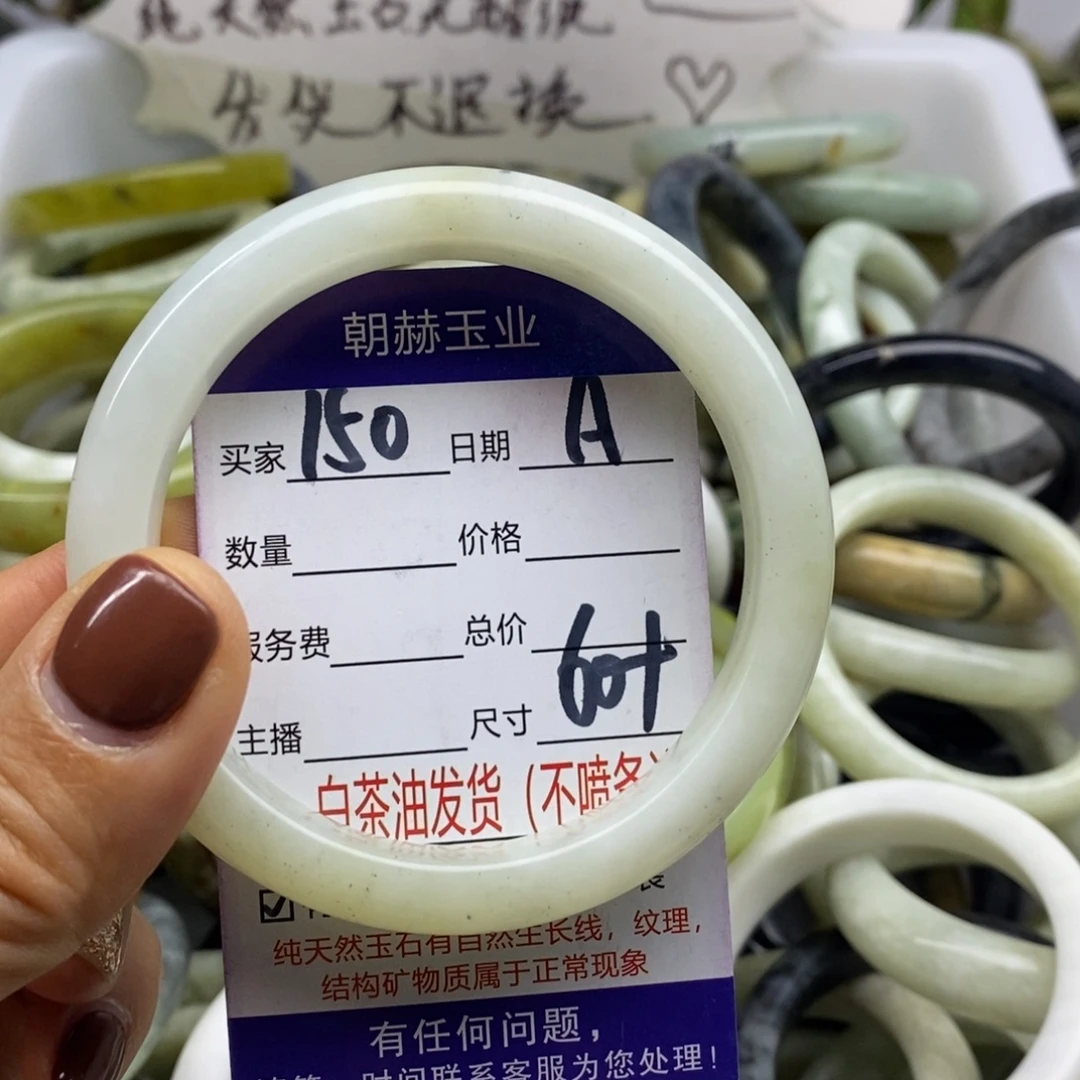 纯天然玉石无
售货不退换 ♡
朝赫玉业
买家 150 日期 A
数量 价格
服务费 总价
主播 尺寸 60+
白茶油发货（不喷
纯天然玉石有自然生长线，纹理，
结构矿物质属于正常现象
有任何问题，
时间联系客服为您处理！